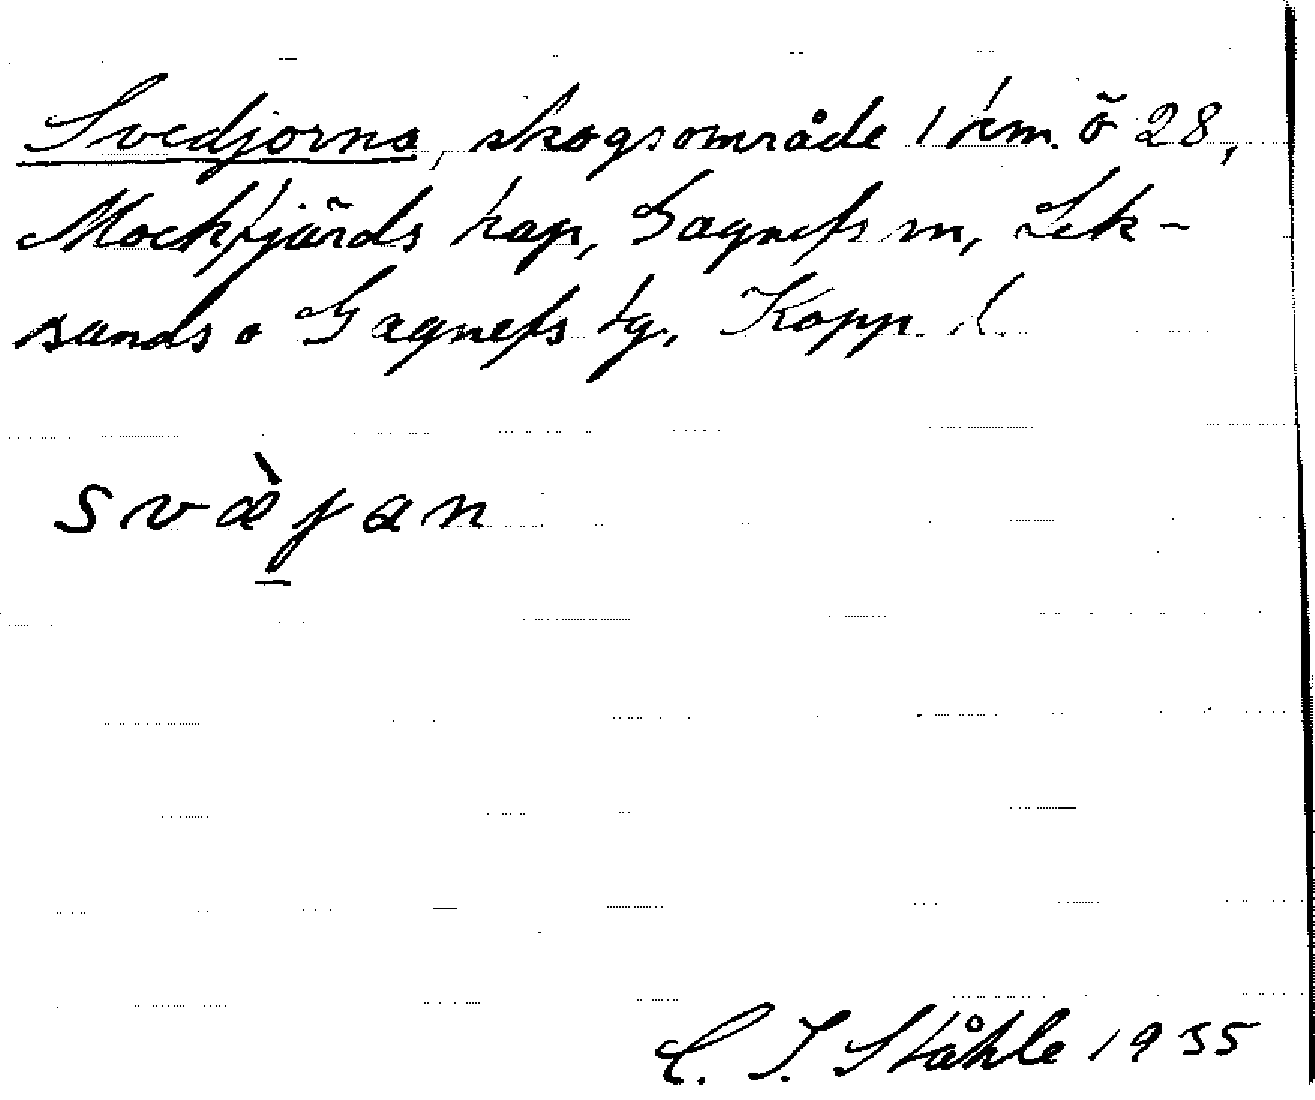 Svedjorna, skogsområde 1 km. ö 28,
Mockfjärds kap, Gagnefs sn, Lek-
sands o Gagnefs tg, Kopp. l.
svæ̀jan
C. I. Ståhle 1935